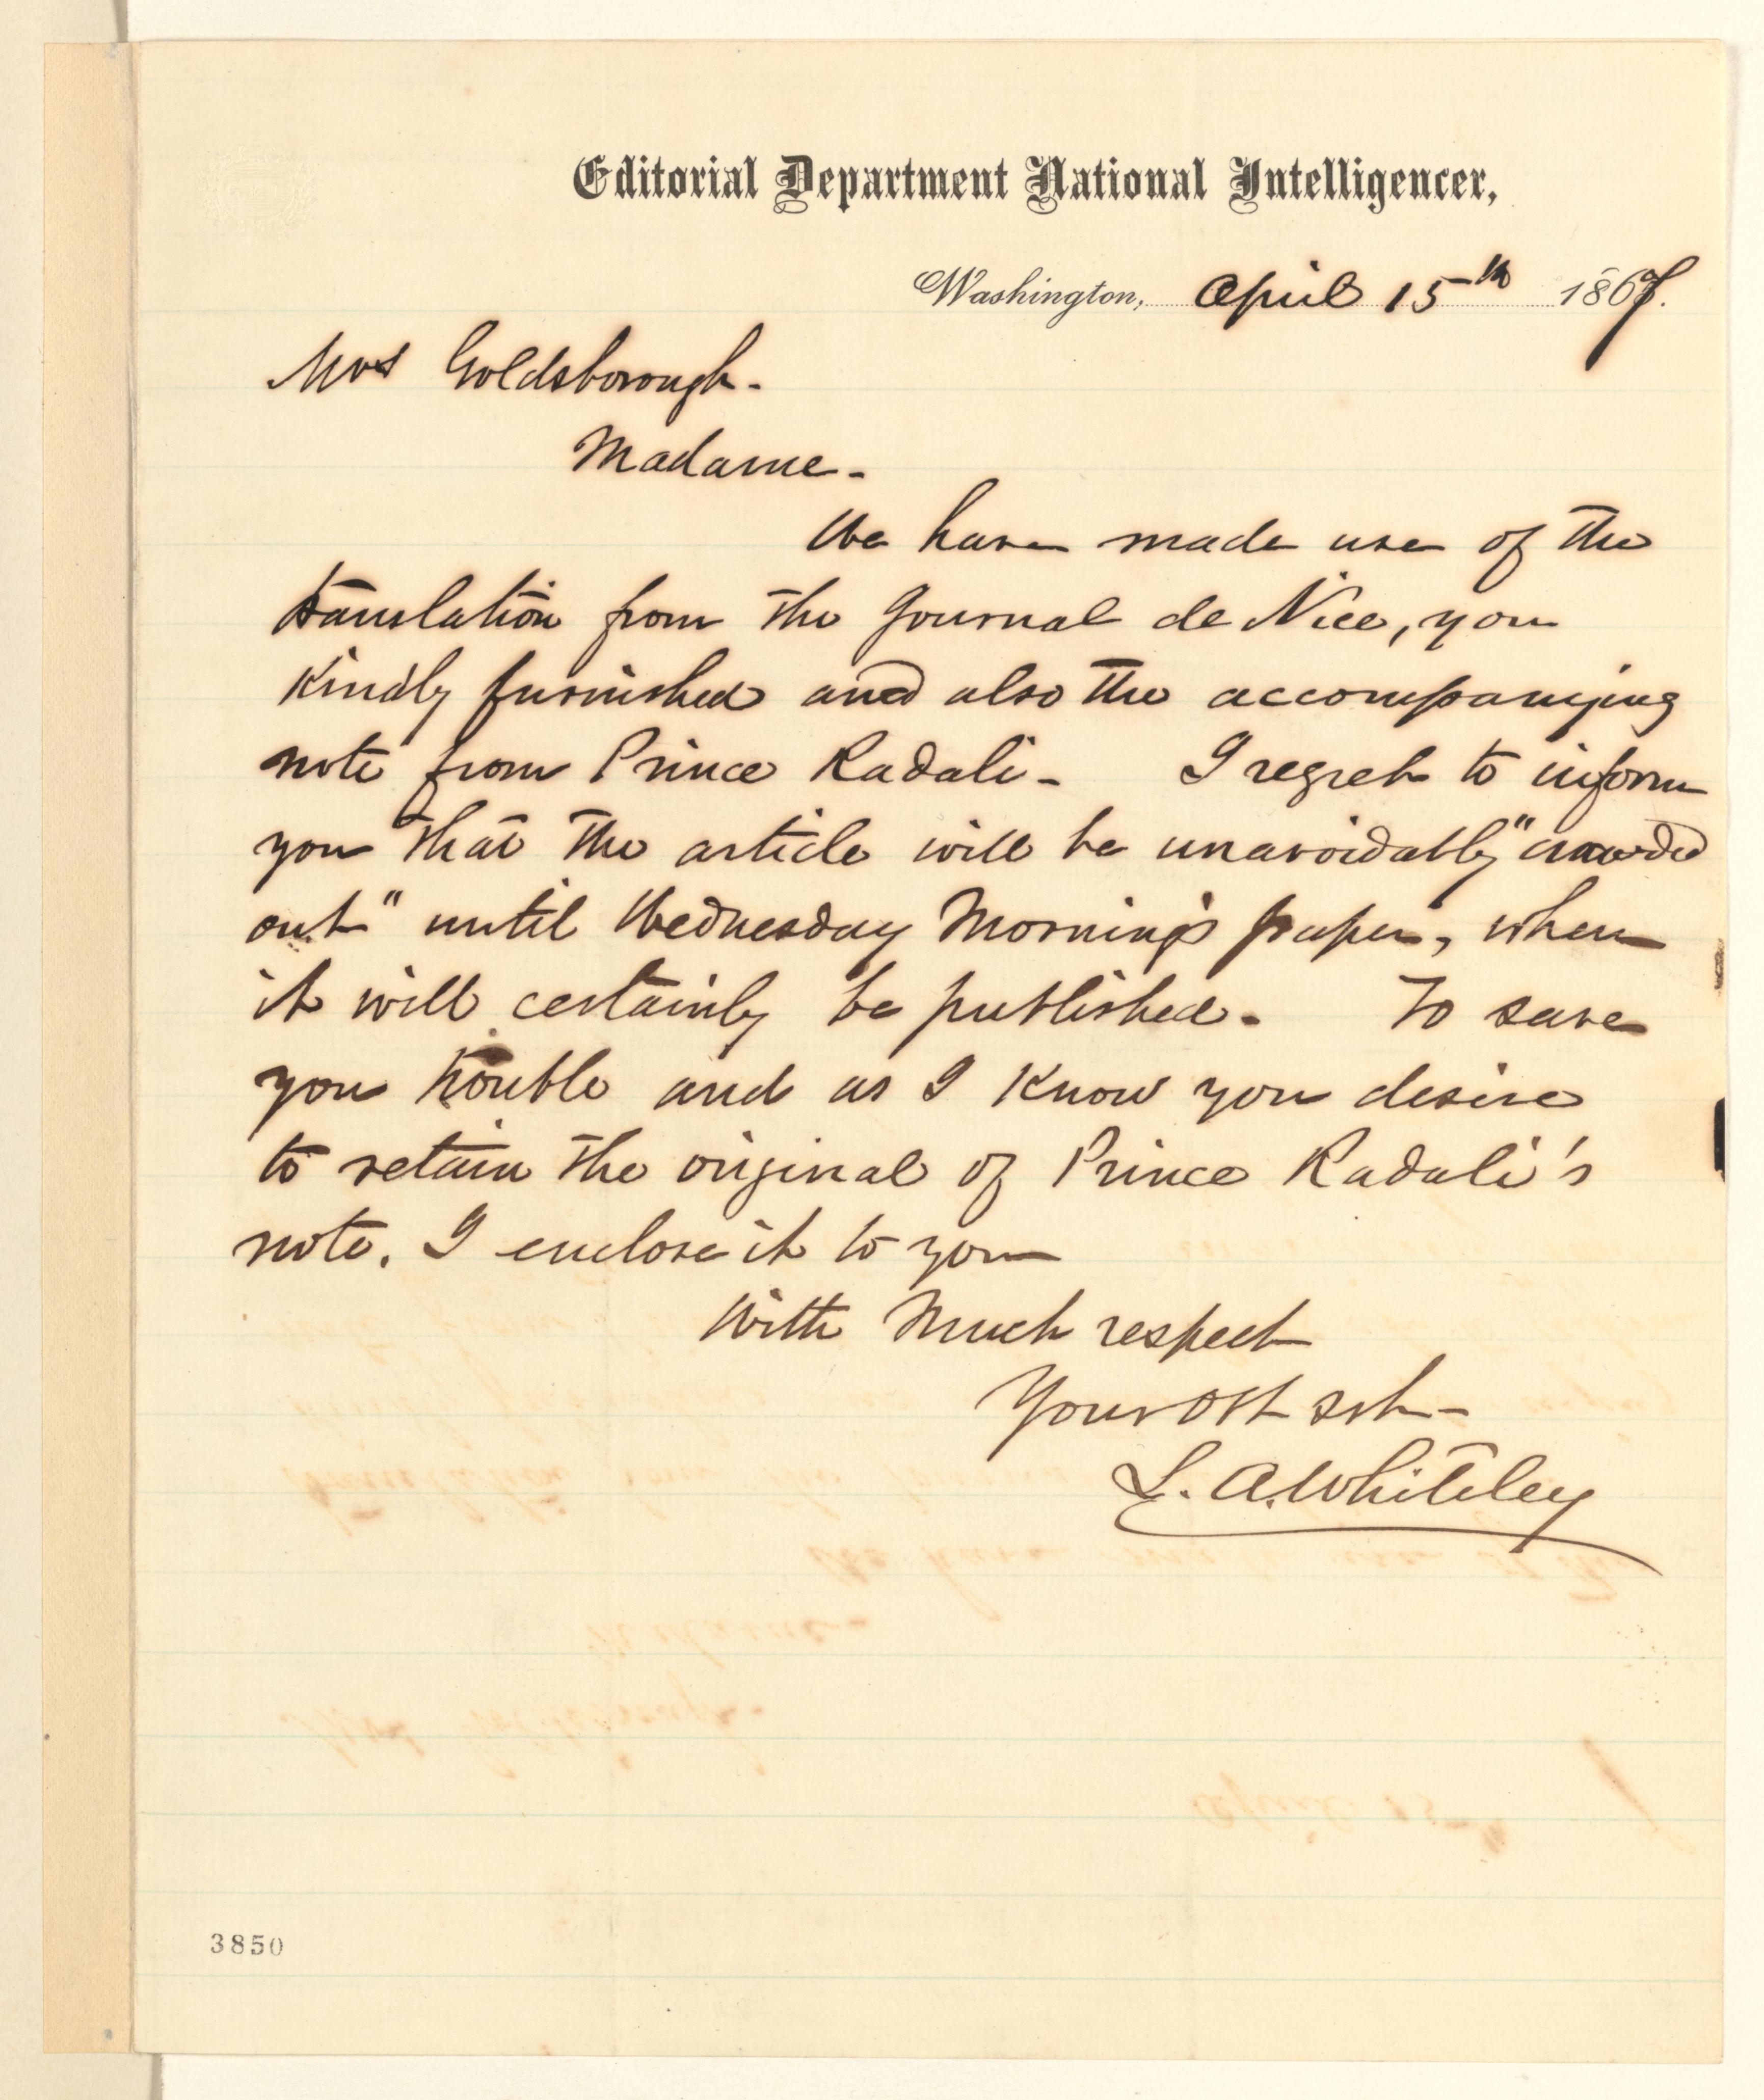 Editorial Department National Intelligencer,
Washington, April 15th 1867.
Mrs Goldsborough.
Madame.
We have made use of the
translation from the Journal de Nice, you
kindly furnished and also the accompanying
note from Prince Radali - I regret to inform
you that the article will be unavoidably "crowded
out" until Wednesday Morning's paper, when
it will certainly be published. To save
you trouble and as I know you desire
to retain the original of Prince Radali's
note. I enclose it to you
With Much respect
Your Obt svt -
L. A. Whiteley
3850